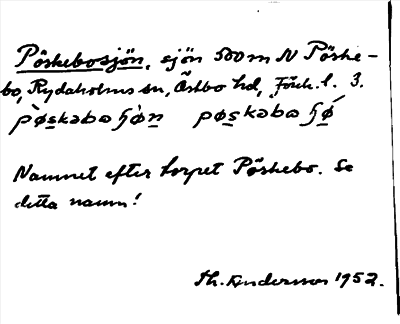 Pöskebosjön, sjön 500 m N Pöske-
bo, Rydaholms sn, Östbo hd, Jönk. l. 3.
pø̀skəbo ɧø̀n pøskəbo ɧǿ
Namnet efter torpet Pöskebo. Se
detta namn!
Th. Andersson 1952.